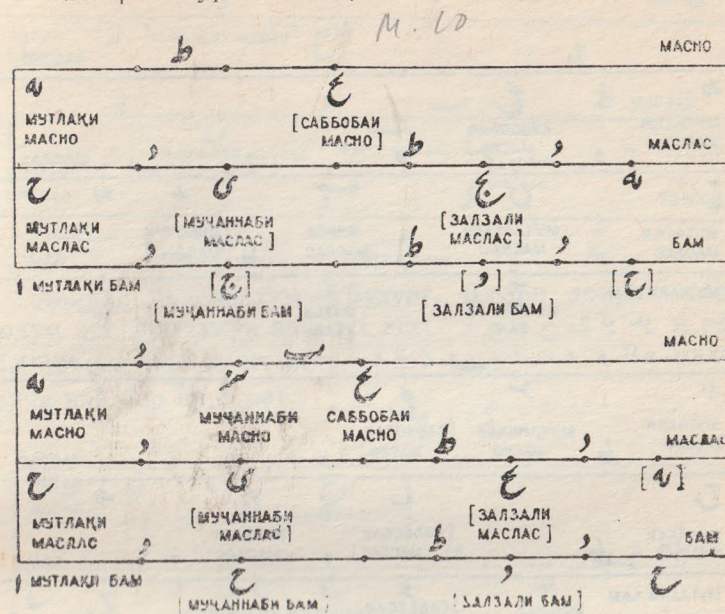 М. 10
ط
МАСНО
یه
ع
МУТЛАҚИ
МАСНО
[САББОБАИ
МАСНО]
و ط و
МАСЛАС
ح ی یج یه
МУТЛАҚИ
МАСЛАС
[МУҶАННАБИ
МАСЛАС]
[ЗАЛЗАЛИ
МАСЛАС]
و ط و
БАМ
ا МУТЛАҚИ БАМ
[ج] [و] [ح]
[МУҶАННАБИ БАМ]
[ЗАЛЗАЛИ БАМ]
و ب
МАСНО
یه یز ع
МУТЛАҚИ
МАСНО
МУҶАННАБИ
МАСНО
САББОБАИ
МАСНО
و ط و
МАСЛАС
ح ی ع [یه]
МУТЛАҚИ
МАСЛАС
[МУҶАННАБИ
МАСЛАС]
[ЗАЛЗАЛИ
МАСЛАС]
و ط و
БАМ
ا МУТЛАҚИ БАМ
ح و ح
[МУҶАННАБИ БАМ]
[ЗАЛЗАЛИ БАМ]